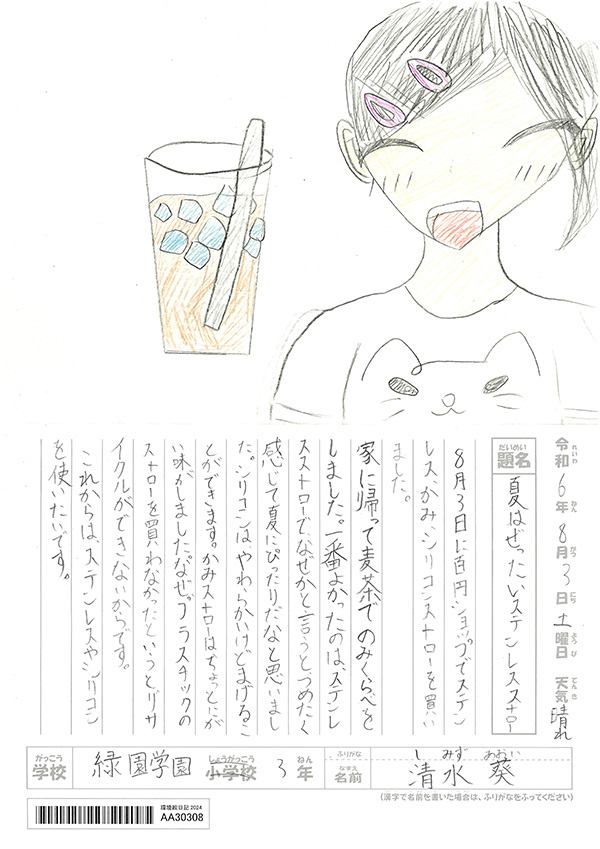 れいわ ねん がつ にち ようび てんき
令和6年8月3日土曜日 天気 晴れ
だいめい
題名 夏はぜったいステンレスストロー
8月3日に百円ショップでステン
レス、かみ、シリコンストローを買い
ました。
家に帰って麦茶でのみくらべを
しました。一番よかったのは、ステンレ
スストローで、なぜかと言うとつめたく
感じて夏にぴったりだなと思いまし
た。シリコンはやわらかいけどまげるこ
とができます。かみストローはちょっとにが
い味がしました。なぜプラスチックの
ストローを買わなかったというとリサ
イクルができないからです。
これからは、ステンレスやシリコン
を使いたいです。
がっこう しょうがっこう ねん ふりがな しみず あおい
学校 緑園学園 小学校 3年 なまえ 名前 清水 葵
(漢字で名前を書いた場合は、ふりがなをふってください)
環境絵日記 2024
AA30308